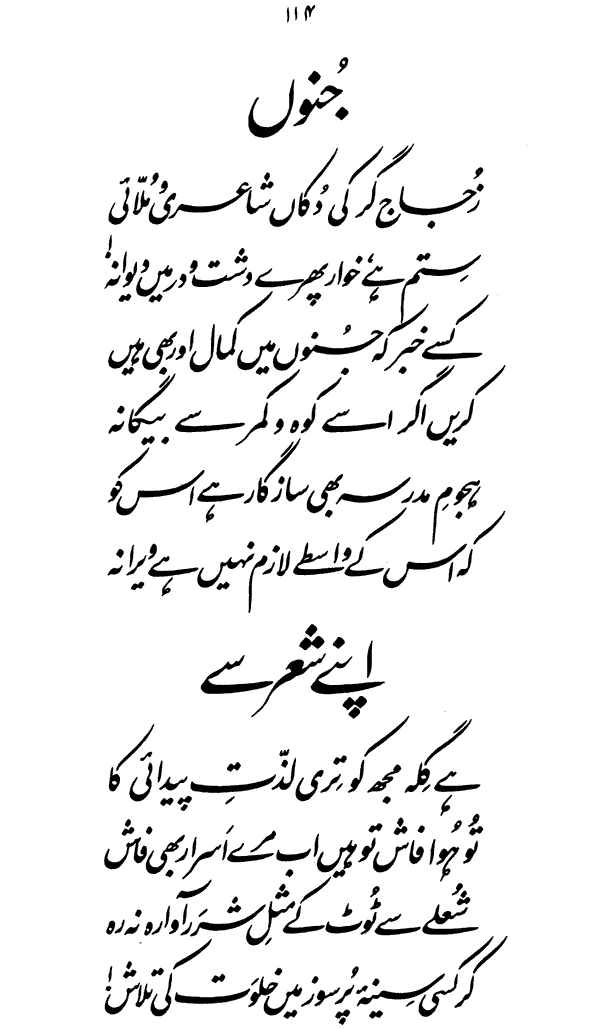 ۱۱۴
جُنوں
زُجاج گر کی دُکاں شاعری و مُلّائی
ستم ہے، خوار پھرے دشت و در میں دیوانہ!
کسے خبر کہ جُنوں میں کمال اور بھی ہیں
کریں اگر اسے کوہ و کمر سے بیگانہ
ہجومِ مدرسہ بھی سازگار ہے اس کو
کہ اس کے واسطے لازم نہیں ہے ویرانہ
اپنے شعر سے
ہے گِلہ مجھ کو تِری لذّتِ پیدائی کا
تُو ہُوا فاش تو ہیں اب مرے اَسرار بھی فاش
شُعلے سے ٹُوٹ کے مثلِ شرَر آوارہ نہ رہ
کر کسی سینۂ پُرسوز میں خلوَت کی تلاش!